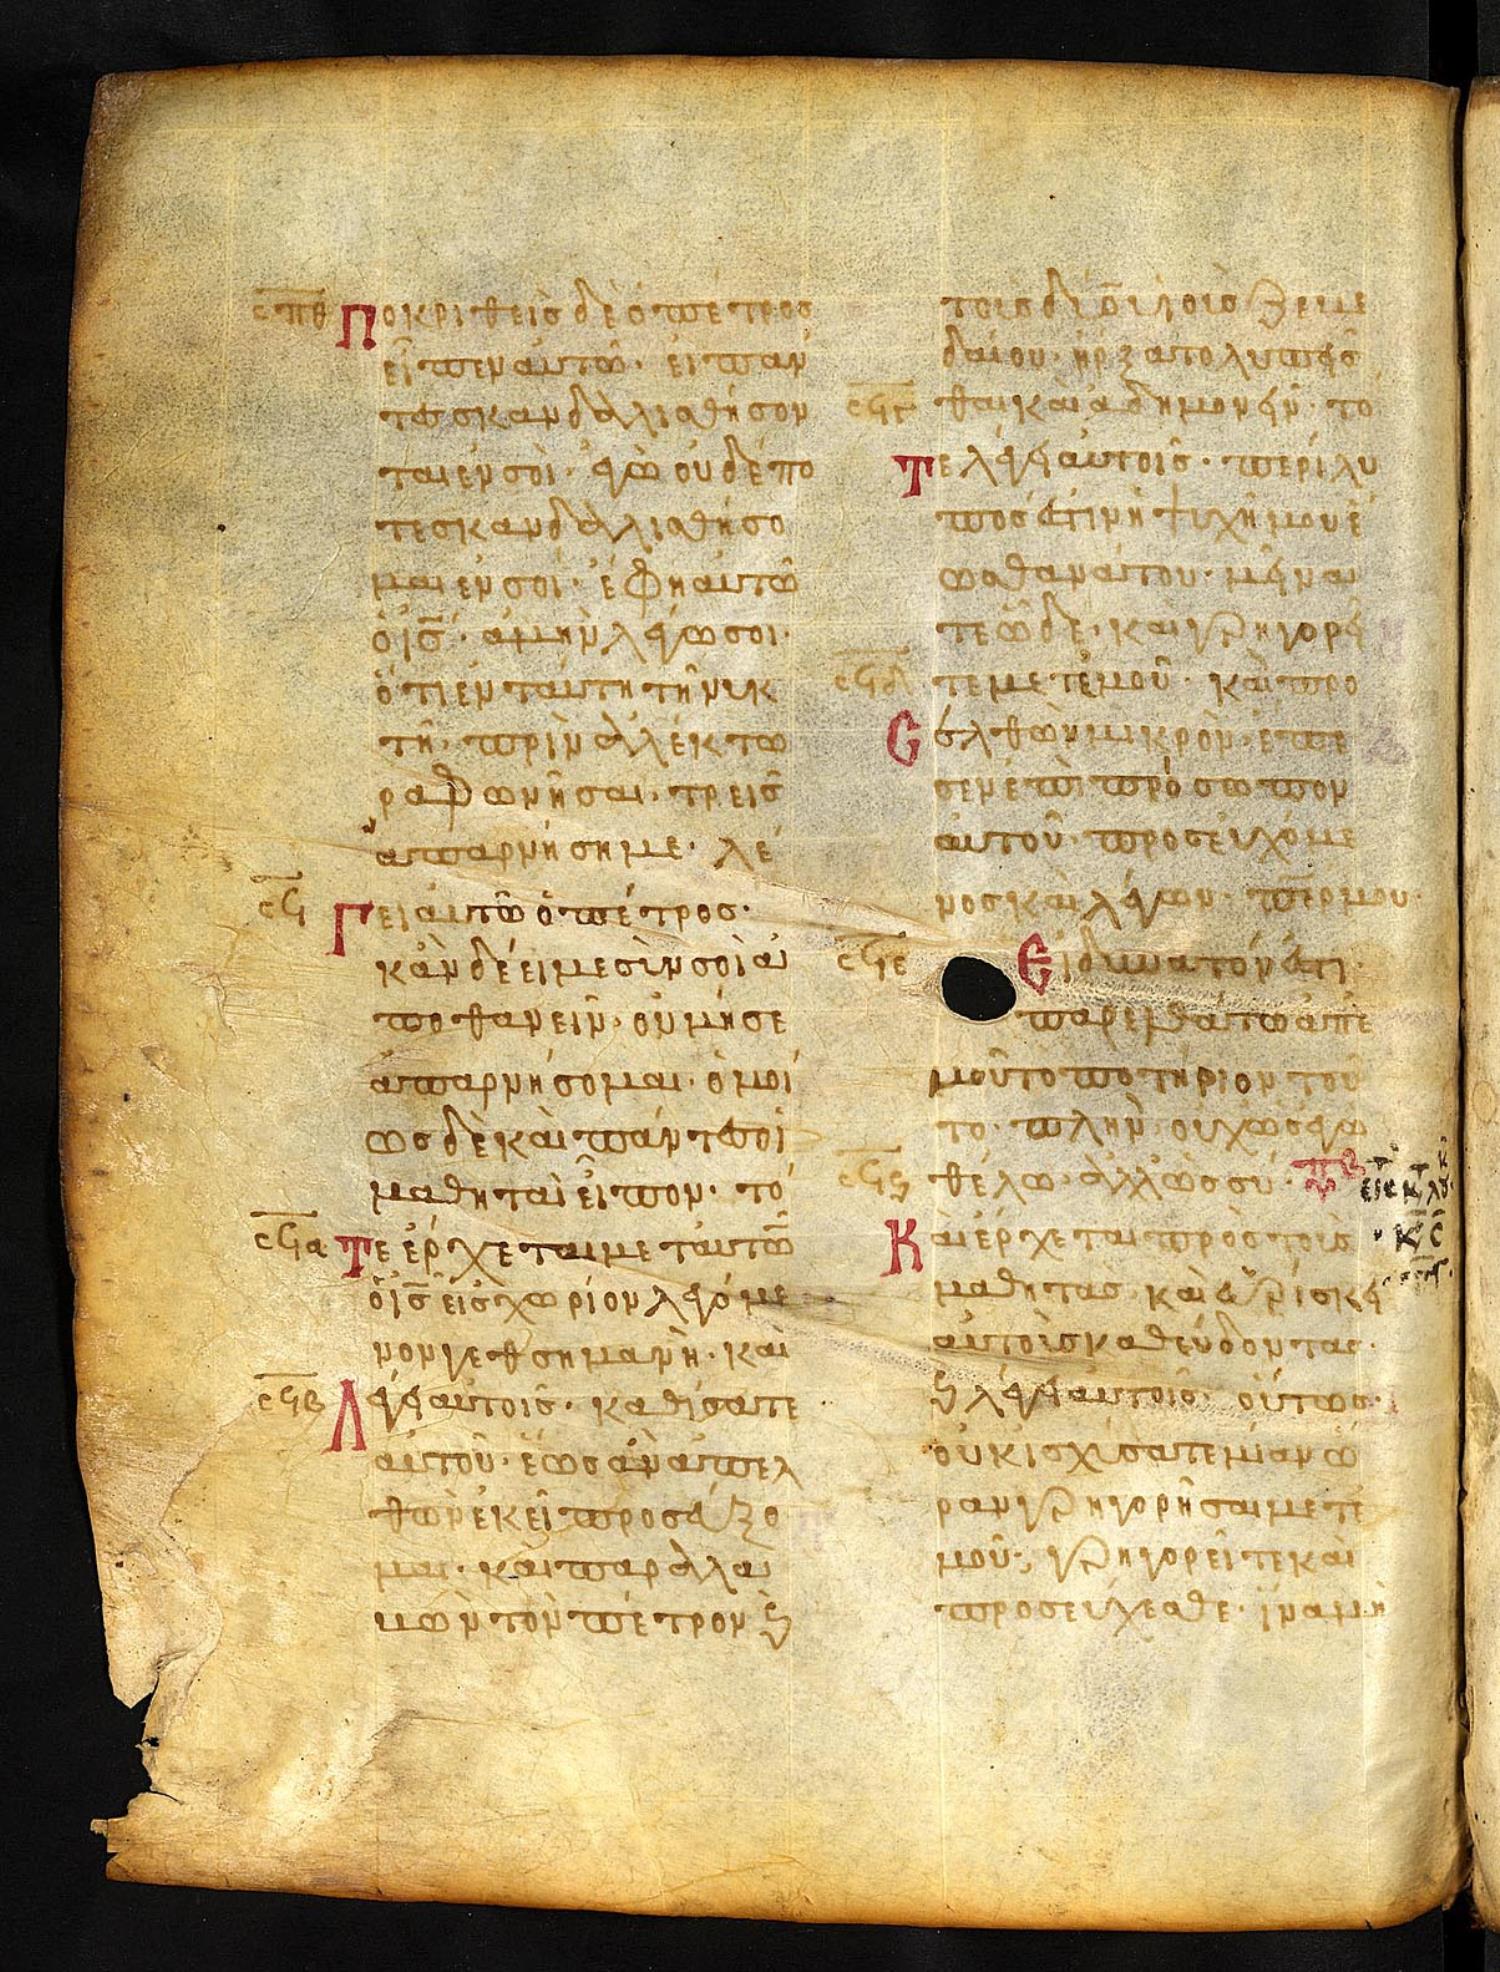 σπθ Ποκριθεὶς δὲ ὁ πέτρος
εἶπεν αὐτῶ· εἰ πάν
τες σκανδαλισθήσον
ται ἐν σοὶ· ἐγὼ οὐδέπο
τε σκανδαλισθήσο
μαι ἐν σοί· ἔφη αὐτῶ
ὁ ἰς̅· ἀμὴν λέγω σοι·
ὅτι ἐν ταύτη τῆ νυκ
τὴ· πρὶν ἀλέκτω
ρα φωνῆσαι· τρεῖς
ἀπαρνήση με· λέ
σϟ Γει αὐτῶ ὁ πέτρος·
κἀν δέει με σὺν σοὶ ἀ
ποθανεῖν· οὐ μή σε
ἀπαρνήσομαι· ὁμοί
ως δὲ καὶ πάντες οἱ
μαθηταὶ εἶπον· τό
σϟα Τε ἔρχεται μετ αὐτῶ̅
ὁ ἰς̅ εἰς χωρίον λεγόμε
νον γεθσημανὴ· καὶ
σϟβ Λέγει αὐτοῖς· καθίσατε
αὐτοῦ· ἕως ἀν ἀπελ
θὼν ἐκεῖ προσεύξο
μαι· καὶ παραλα
μὼν τὸν πέτρον ϗ
τοὺς δύο υἱοὺς ζεβε
δαίου· ἤρξατο λυπεῖσ
σϟγ θαι καὶ ἀδημονεῖν· τό
Τε λέγει αὐτοῖς· περίλυ
πος ἐστιν ἡ ψυχή μου ἕ
ως θανάτου· μείναι
τε ὧδε· καὶ γρηγορεῖ
σϟδ τε μετ ἐμοῦ· καὶ προ
Ελθὼν μικρὸν· ἔπε
σεν ἐπὶ πρόσωπον
αὐτοῦ· προσευχόμε
νος καὶ λέγων· πε̅ρ μου·
σϟε Εἰ δυνατόν ἐστι·
παρελθάτω ἀπ ἐ
μοῦ τὸ ποτήριον τοῦ
το· πλὴν οὐχ ὡς ἐγὼ
σϟϛ θέλω· ἀλλ ὡς σύ·
Καὶ ἔρχεται πρὸς τοὺς
μαθητὰς καὶ εὑρίσκει
αὐτοὺς καθεύδοντας·
ϗ λέγει αὐτοῖς· οὕτως·
οὐκ ἰσχύσατε μίαν ὥ
ραν γρηγορῆσαι μετ ἐ
μοῦ; γρηγορεῖτε καὶ
προσεύχεσθε· ἵνα μὴ